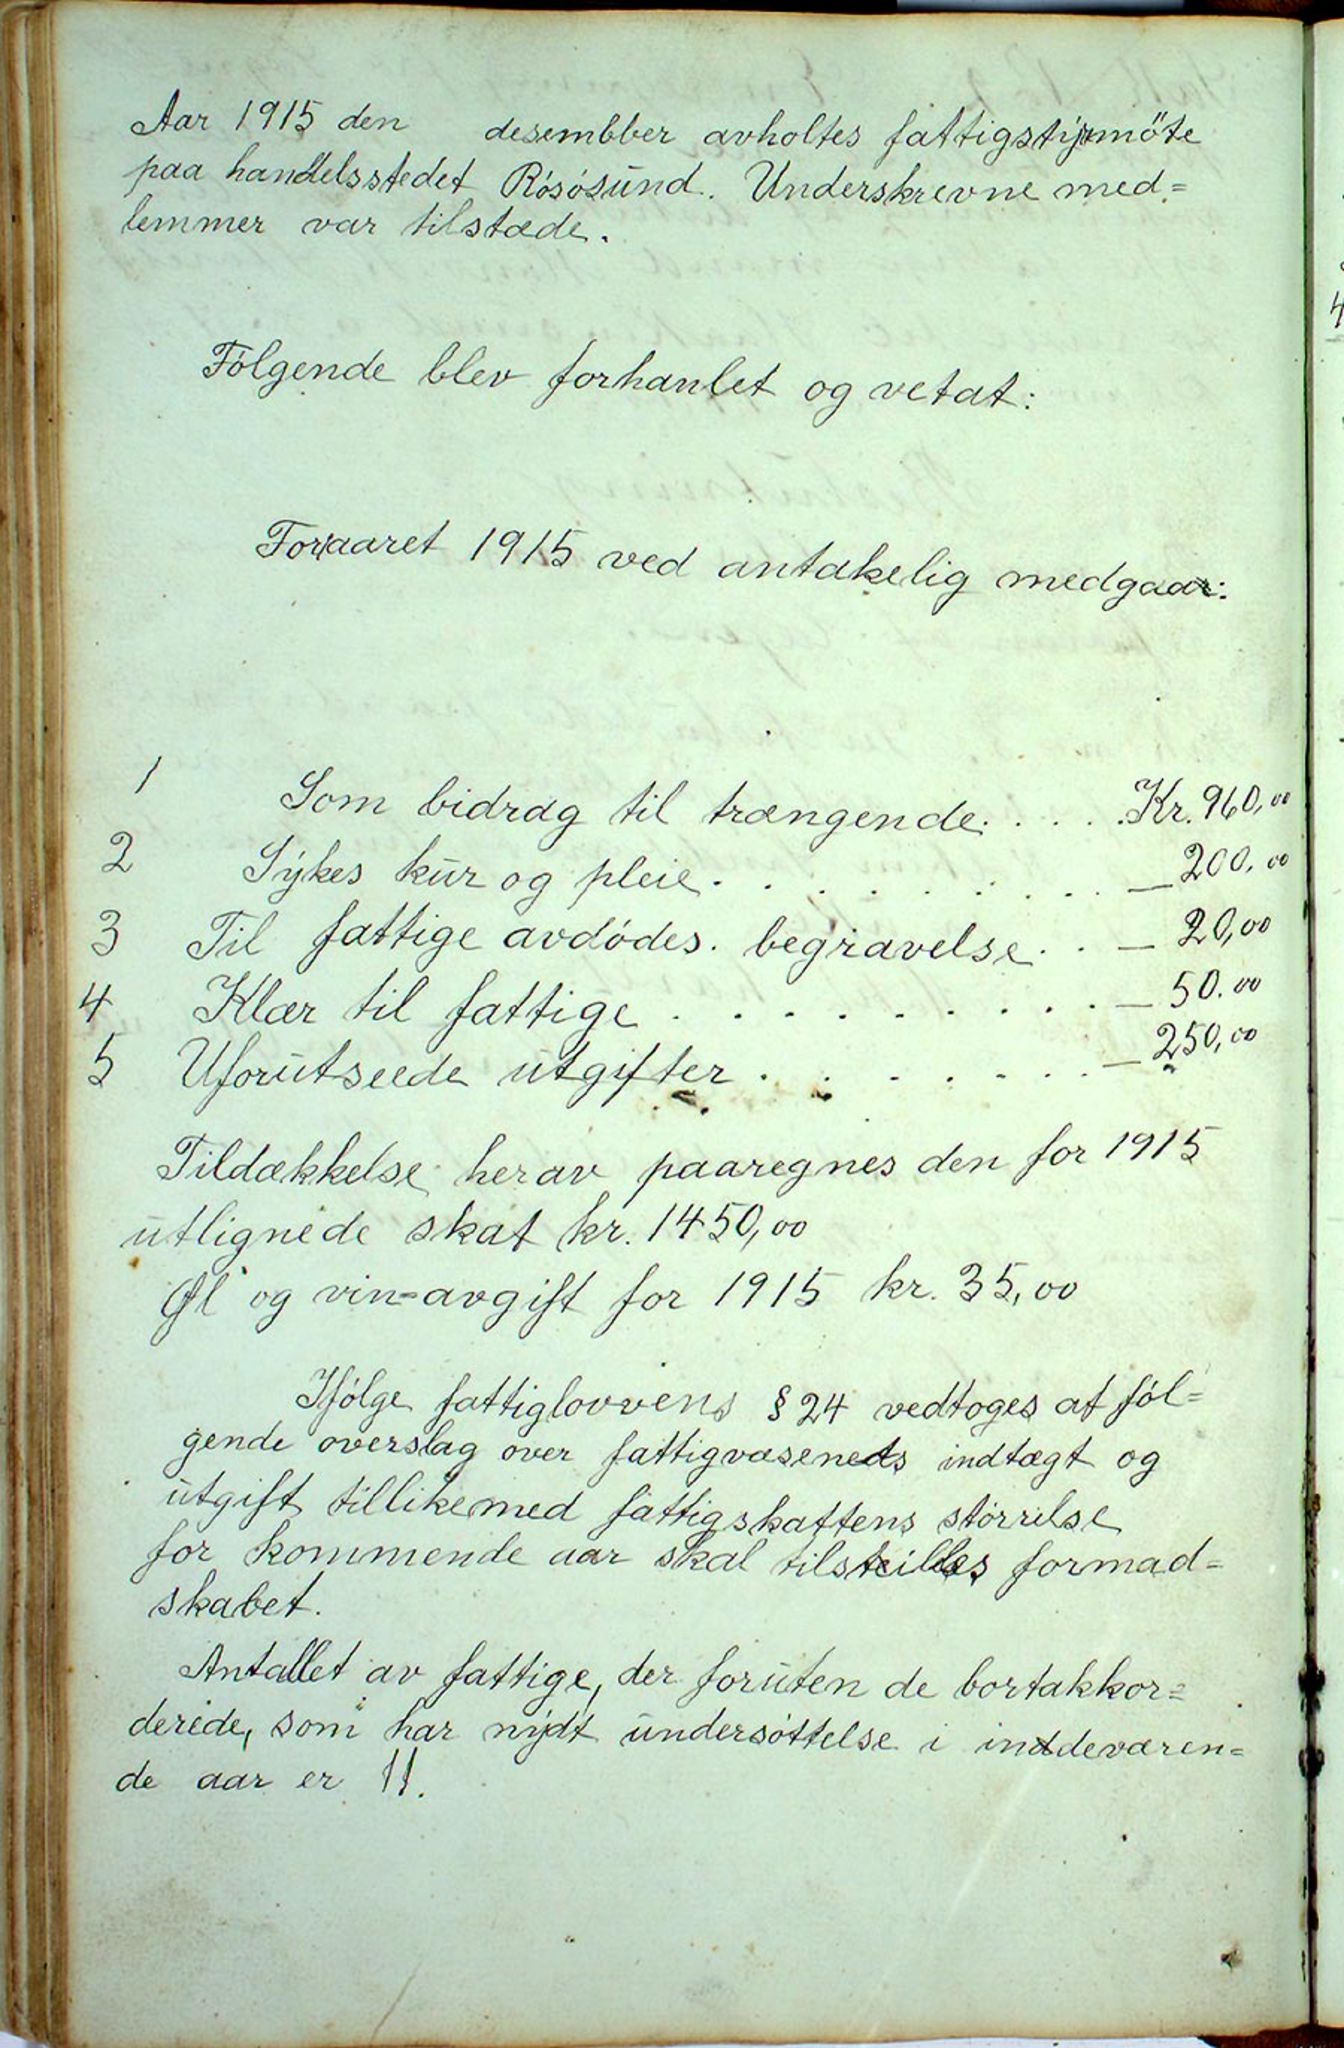 Aar 1915 den desembber avholtes fattigstyrmöte
paa handelsstedet Rósósund. Underskrevne med=
lemmer var tilstæde.
Fólgende blev forhanlet og vetat:
For aaret 1915 ved antakelig medgaar:
1 Som bidrag til trængende. . . . . Kr. 960,00
2 Sykes kur og pleie. . . . . . . . . — 200,00
3 Til fattige avdódes. begravelse. . — 20,00
4 Klær til fattige . . . . . . . . . — 50.00
5 Uforutseede utgifter . . . . . . . — 250,00
Tildækkelse herav paaregnes den for 1915
utlignede skat kr. 1450,00
Øl og vin=avgift for 1915 kr. 35,00
Ifólge fattiglovvens § 24 vedtoges at fól=
gende overslag over fattigvæsenets indtægt og
utgift tillikemed fattigskattens stórrelse
for kommende aar skal tilstilles formad=
skabet.
Antallet av fattige, der foruten de bortakkor=
derede, som har nydt undersóttelse i inddeværen=
de aar er 11.